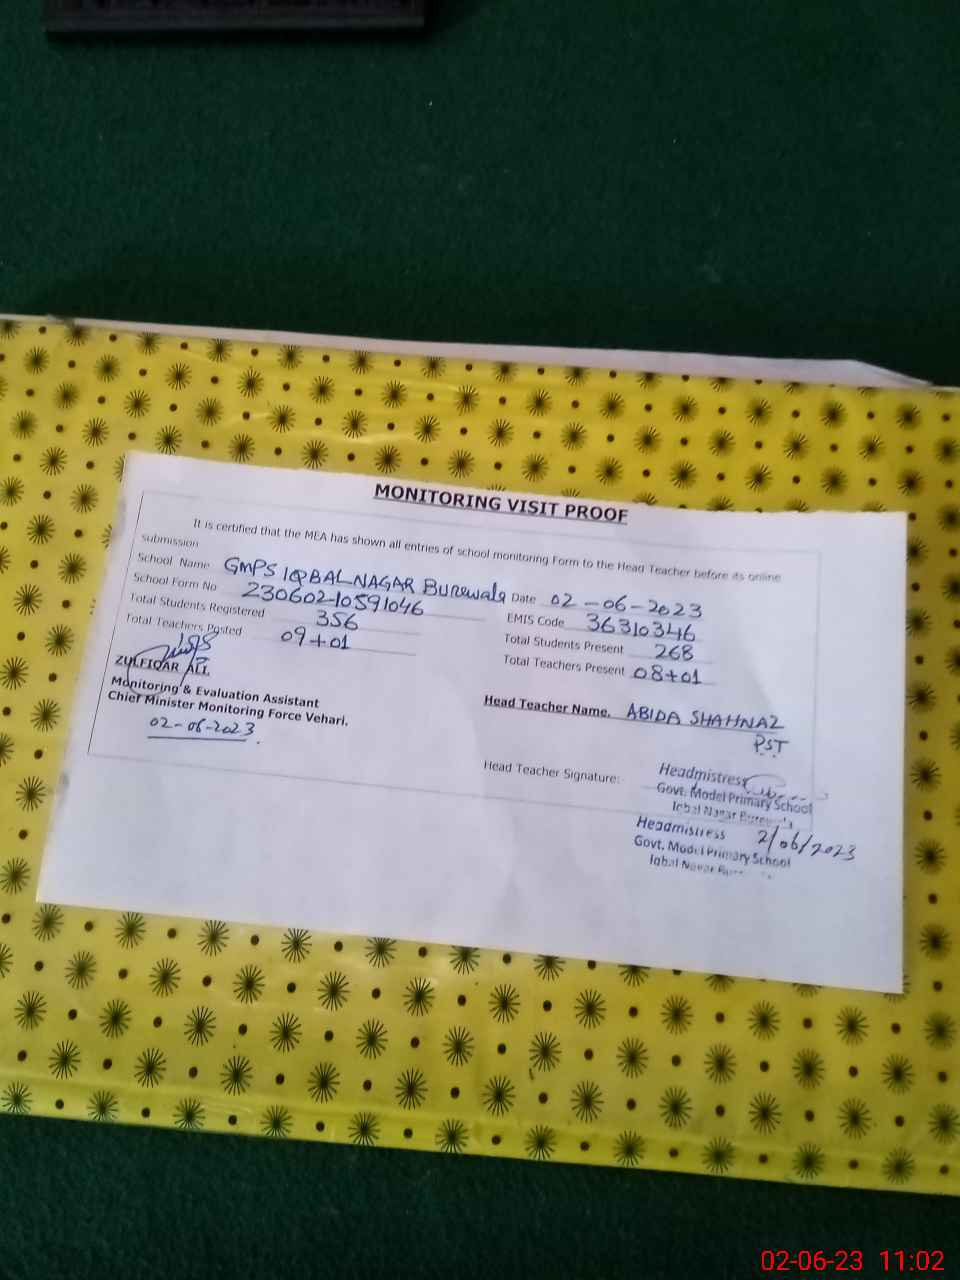 MONITORING VISIT PROOF
It is certified that the MEA has shown all entries of school monitoring Form to the Head Teacher before its online
submission
School Name GMPS IQBAL NAGAR Burewala Date 02-06-2023
School Form No 230602-10591046 EMIS Code 36310346
Total Students Registered 356 Total Students Present 268
Total Teachers Posted 09+01 Total Teachers Present 08+01
ZULFIQAR ALI
Monitoring & Evaluation Assistant
Chief Minister Monitoring Force Vehari.
02-06-2023
Head Teacher Name. ABIDA SHAHNAZ
PST
Head Teacher Signature:
Headmistress
Govt. Model Primary School
Iqbal Nagar Burewala
2/06/2023
Headmistress
Govt. Model Primary School
Iqbal Nagar
02-06-23 11:02